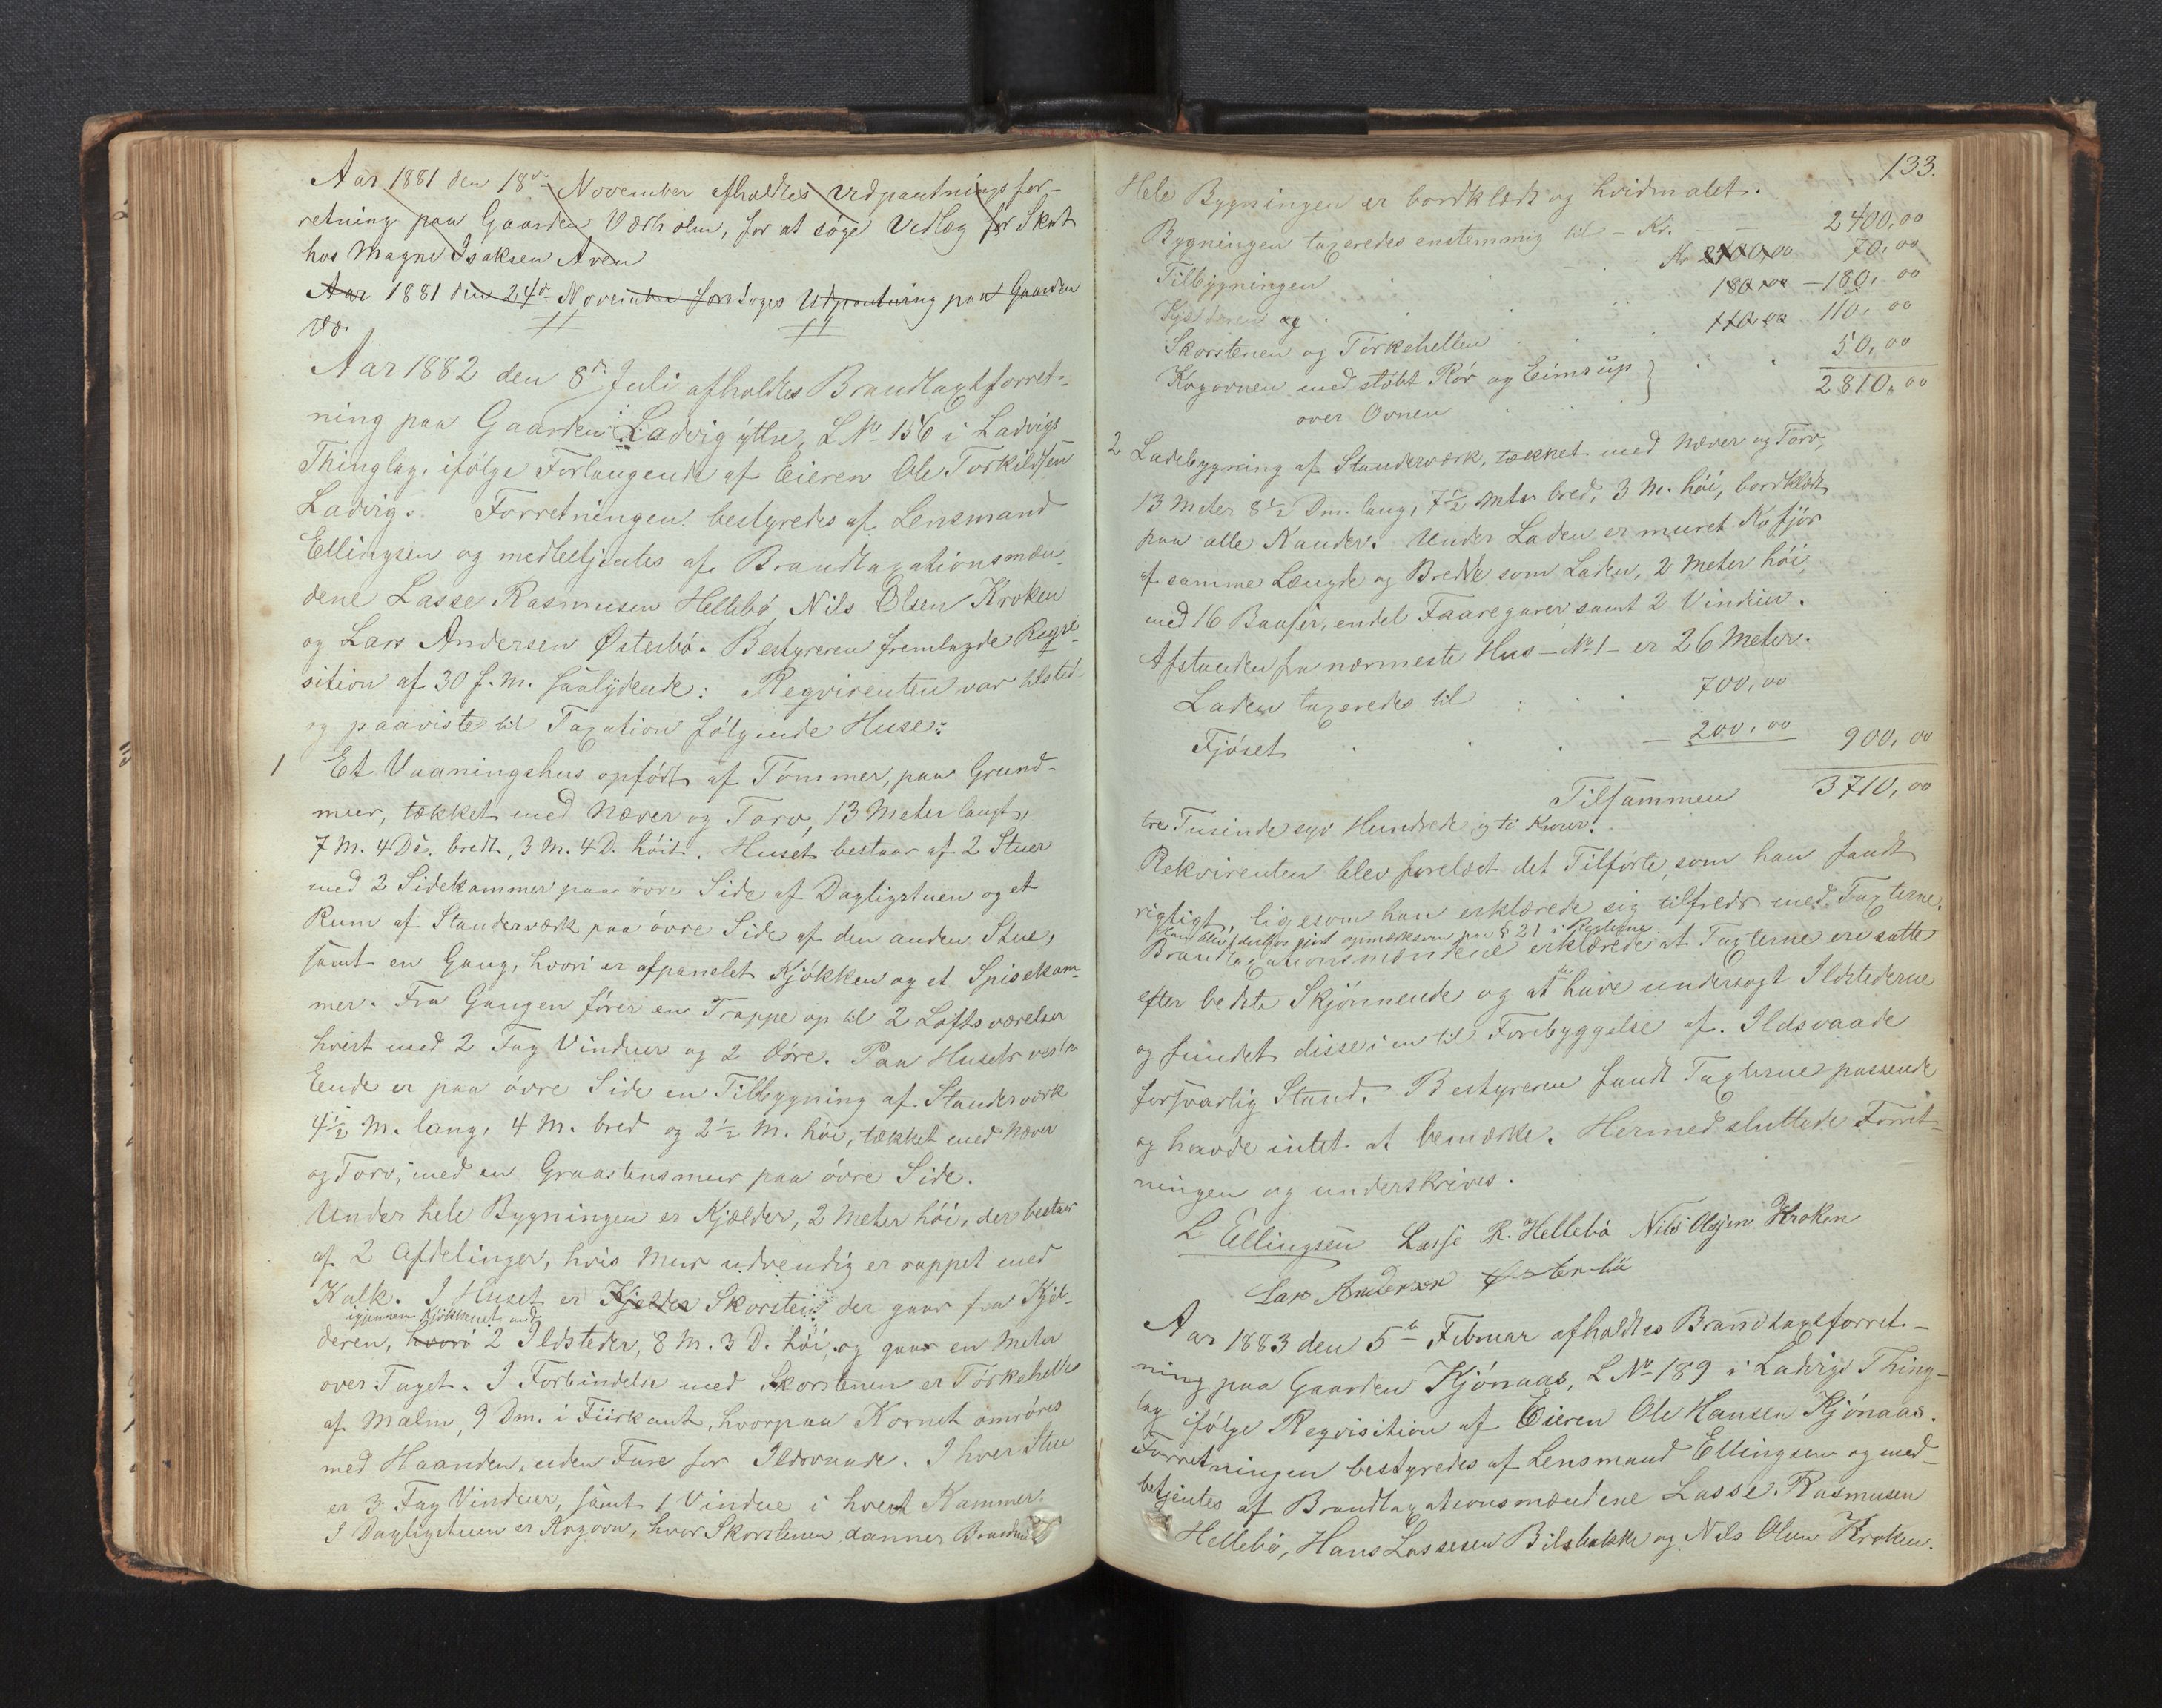 Aar 1881 den 18de November afholdtes Udpantningsfor-
retning paa Gaarden Værholm, for at söge Vedlæg for Skat
hos Magne Isaksen Aven
Aar 1881 den 24de November foretoges Udpantning paa Gaarden
Aar 1882 den 8de Juli afholdtes Brandtaxtforret-
ning paa Gaarden Ladvig ýttre, L No 156 i Ladvigs
Thinglag, ifölge Forlangende af Eieren Ole Torkildsen
Ladvig. Forretningen bestyredes af Lensmand
Ellingsen og medbetjentes af Brandtaxationsmæn-
dene Lasse Rasmusen Hellebö, Nils Olsen Kroken
og Lars Andersen Østerbö. Bestyreren fremlagde Reqvi-
sition af 30 f.M. saalýdende: Reqvirenten var tilsted
og paaviste til Taxation fölgende Huse:
1 Et Vaaningshus opfört af Tömmer, paa Grund-
mur, tækket med Næver og Torv, 13 Meter langt,
7 M. 4 De. bredt, 3 M. 4 D. höit. Huset bestaar af 2 Stuer
med 2 Sidekammer paa övre Side af Dagligstuen og et
Rum af Standerværk paa övre Side af den anden Stue,
samt en Gang, hvori er afpanelet Kjökken og et Spisekam-
mer. Fra Gangen förer en Trappe op til 2 Loftsværelser
hvert med 2 Fag Vinduer og 2 Döre. Paa Husets vestre
Ende er paa övre Side en Tilbygning af Standerværk
4½ M. lang, 4 M. bred og 2½ M. höi, tækket med Næver
og Torv, med en Graastensmur paa övre Side.
Under hele Bygningen er Kjælder, 2 Meter höi, der bestaar
af 2 Afdelinger, hvis Mur udvendig er rappet med
Kalk. I Huset er Kjelder Skorsten der gaar fra Kjel-
igjennem Kjökkenet med
deren, hvori 2 Ildsteder, 8 M. 3 D. höi, og gaar en Meter
over Taget. I Forbindelse med Skorstenen er Törkehelle
af Malm, 9 Dm. i Fiirkant, hvorpaa Kornet omröres
med Haanden, uden Fare for Ildsvaade. I hver Stue
er 3 Fag Vinduer, samt 1 Vindue i hvert Kammer.
I Dagligstuen er Kogovn, hvor Skorstenen danner Brandmur
133.
Hele Bygningen er bordklædt og hvidmalet.
Bygningen taxeredes enstemmig til – Kr. – – – 2400,00
Tilbygningen Kr 2400,00 70,00
Kjælderen og 180,00 – 180,00
Skorstenen og Törkehellen 110,00 110,00
Kogovnen med stöbt Rör og Eimsup } 50,00
over Ovnen 2810,00
2 Ladebygning af Standerværk, tækket med Næver og Torv,
13 Meter 8½ Dm. lang, 7½ Meter bred, 3 M. höi, bordklædt
paa alle Kander. Under Laden er muret Köfjös
af samme Længde og Bredde som Laden, 2 Meter höi,
med 16 Baaser, endel Faaregarer samt 2 Vinduer.
Afstanden fra nærmeste Hus – No 1 – er 26 Meter.
Laden taxeredes til 700,00
Fjöset – 200,00 900,00
Tilsammen 3710,00
tre Tusinde syv Hundrede og ti Kroner.
Rekvirenten blev forelæst det Tilförte, som han fandt
rigtigt, ligesom han erklærede sig tilfreds med Taxterne.
Han blev derhos gjort opmærksom paa § 21 i Reglerne.
Brandtaxationsmændene erklærede at Taxterne ere satte
efter bedste Skjönnende og at de have undersögt Ildstederne
og fundet disse i en til Forebyggelse af Ildsvaade
forsvarlig Stand. Bestyreren fandt Taxterne passende
og havde intet at bemærke. Hermed sluttede Forret-
ningen og underskrives.
L Ellingsen Lasse R. Hellebö Nils Olssen Kroken
Lars Andersen Østerbö
Aar 1883 den 5te Februar afholdtes Brandtaxtforret-
ning paa Gaarden Kjönaas, L No 189 i Ladvigs Thing-
lag ifölge Reqvisition af Eieren Ole Hansen Kjönaas.
Forretningen bestyredes af Lensmand Ellingsen og med-
betjentes af Brandtaxationsmændene Lasse Rasmusen
Hellebö, Hans Lassesen Bilsbakke og Nils Olsen Kroken.